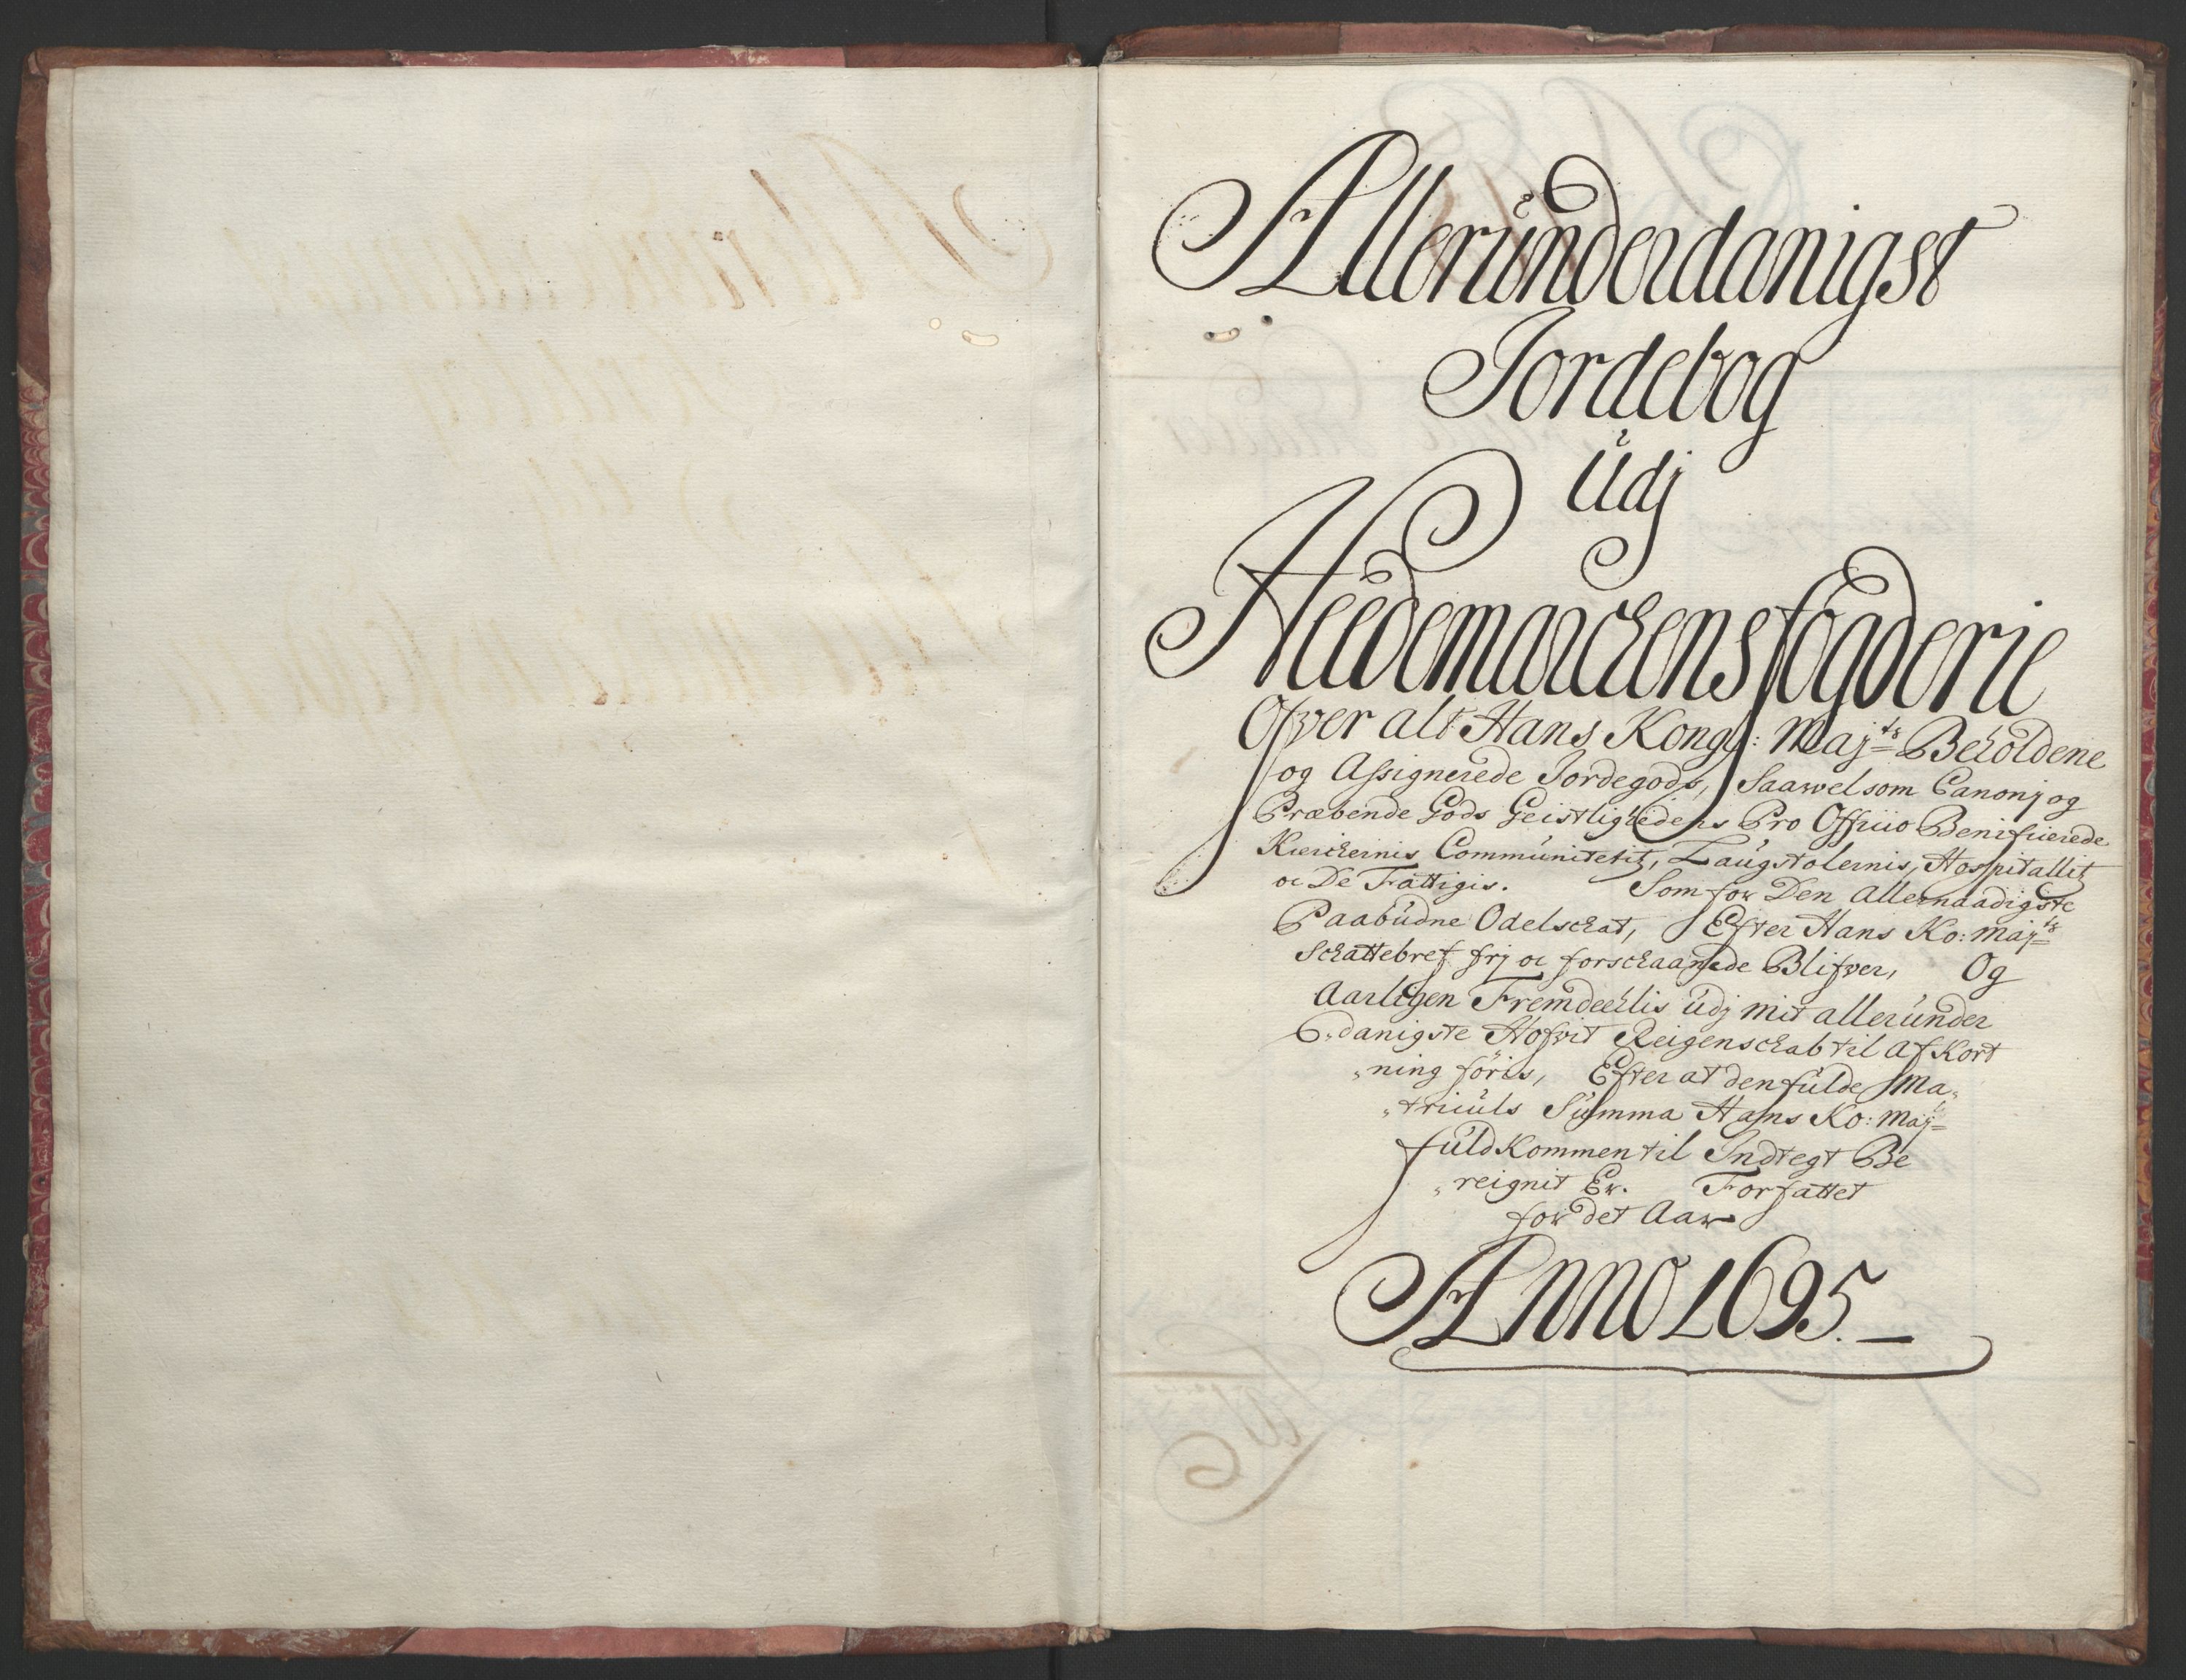 Allerunderdanigst
Jordebog
Udj
Heedemarckens fögderie
Ofver alt Hans Kongl: Maj.ts Beholdene
og Assignerede Jordegods, Saavvel som Canonj og
Præbende Gods Geistlighedens Pro Officio Benificierede
Kierckernis Communitetitz, Laugstolernis, Hospitallitz
oc De Fattigis. Som for Den Allernaadigste
Paabudne Odelsckat, Efter Hans Ko: Maj.ts
Sckattebref frj oc forsckaanede Blifver, Og
Aarligen Fremdeelis udj mit allerunder
danigste Hofvit Reigensckab til Af Kort
„ning föris, Efter at den fulde Ma„
„triculs Summa Hans Ko: Maj.ts
fuldkommen til Indtegt Be
„reignit Er. Forfattet
for det Aar
Anno 1695.